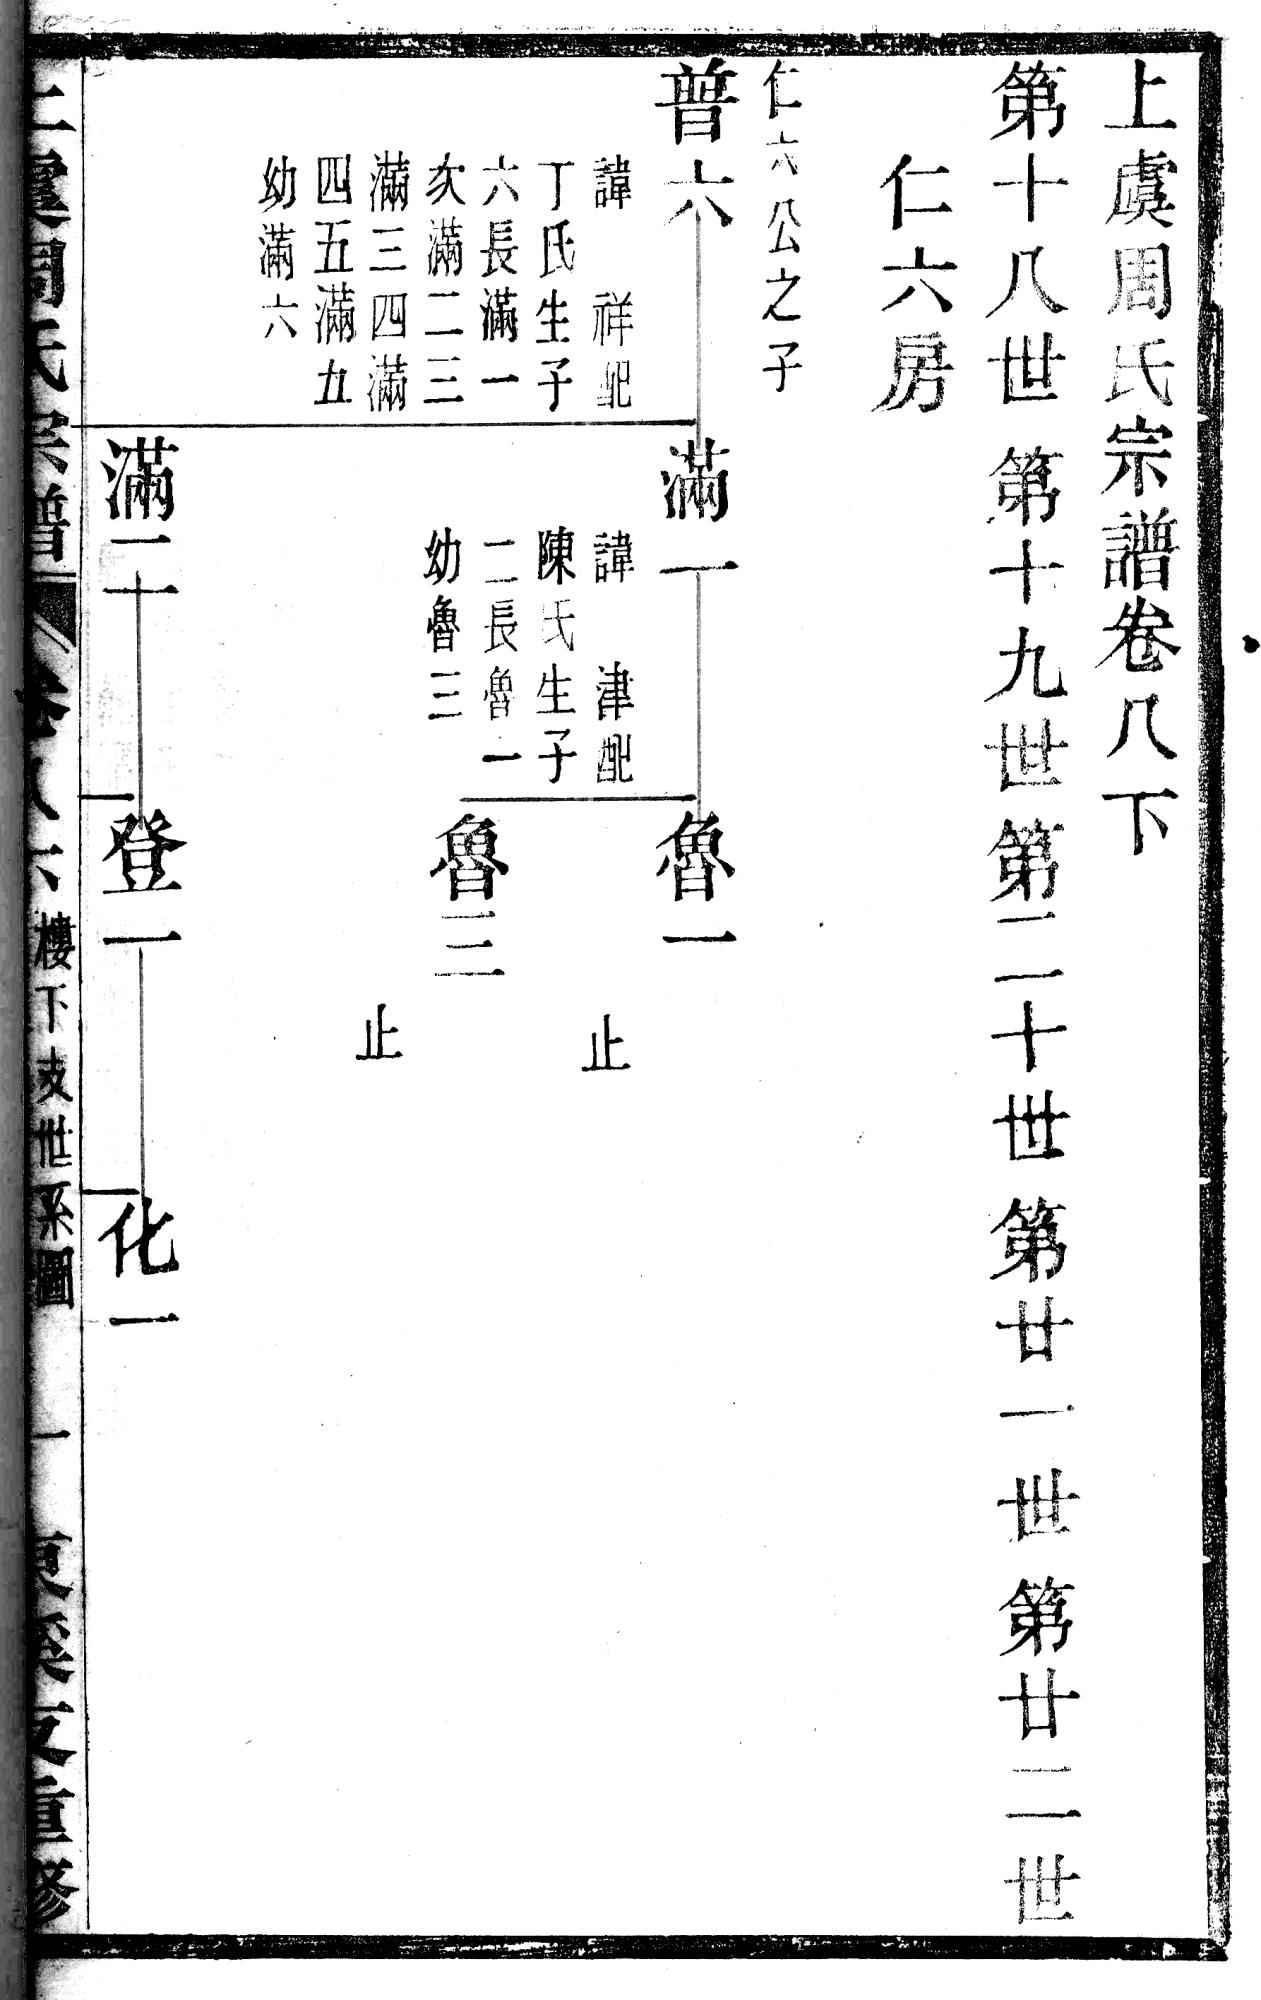 上虞周氏宗譜卷八下
第十八世 第十九世 第二十世 第廿一世 第廿二世
仁六房
仁六公之子
普六
諱 祥配
丁氏生子
六長滿一
次滿二三
滿三四滿
四五滿五
幼滿六
滿一
諱 津配
陳氏生子
二長魯一
幼魯三
魯一
止
魯三
止
滿二
登一
化一
上虞周氏宗譜 卷八下 樓下支世系圖 一 重修